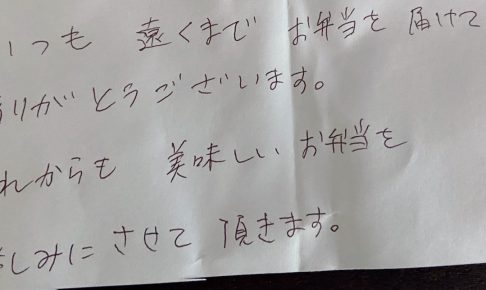 いつも 遠くまで お弁当を 届けて
ありがとうございます。
これからも 美味しい お弁当を
楽しみに させて 頂きます。